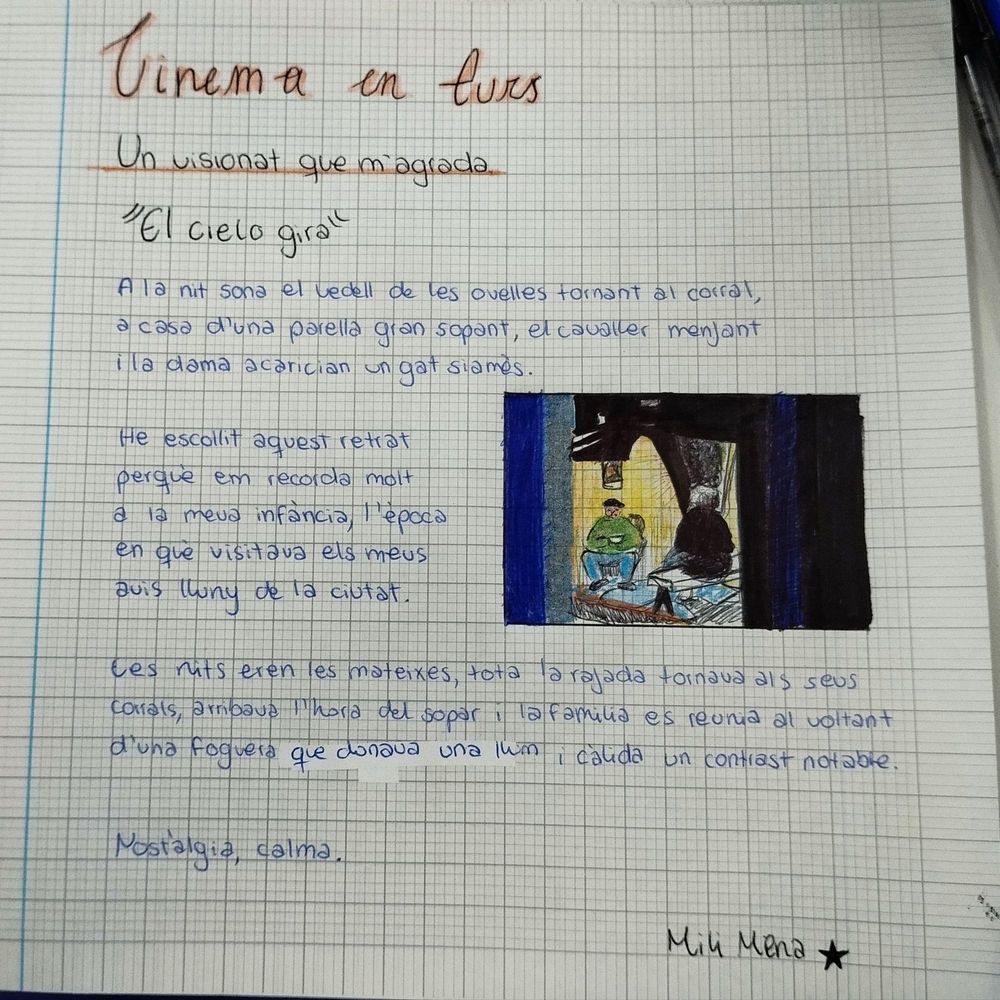 Cinema en curs
Un visionat que m'agrada
"El cielo gira"
A la nit sona el vedell de les ovelles tornant al corral,
a casa d'una parella gran sopant, el cavaller menjant
i la dama acarician un gat siamès.
He escollit aquest retrat
perquè em recorda molt
a la meva infància, l'època
en què visitava els meus
avis lluny de la ciutat.
Les nits eren les mateixes, tota la rajada tornava als seus
corrals, arribava l'hora del sopar i la família es reunia al voltant
d'una foguera que donava una llum i càlida un contrast notable.
Nostàlgia, calma.
Mili Mena